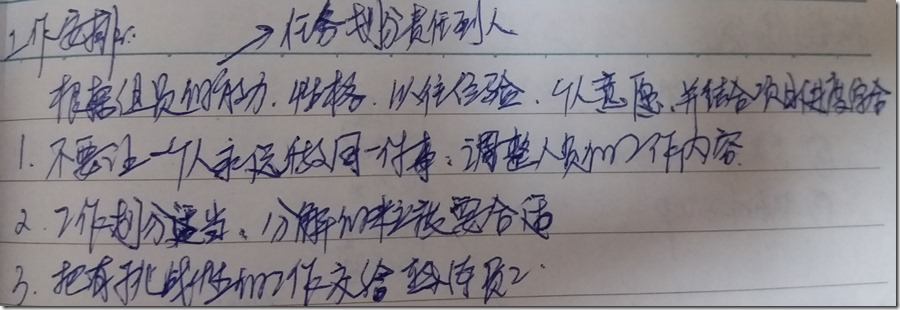 工作安排: → 任务划分责任到人
根据组员的能力、性格、以往经验、个人意愿,并结合项目进度综合
1. 不要让一个人永远做同一件事,调整人员的工作内容.
2. 工作划分适当、分解的粒度要合适
3. 把有挑战性的工作交给 员工.